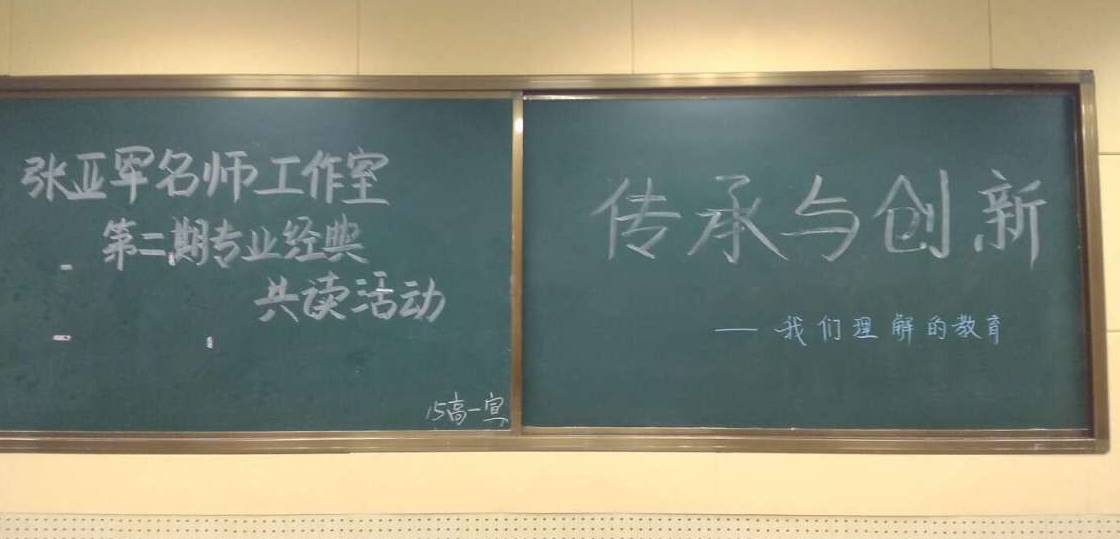 张亚军名师工作室
第二期专业经典
共读活动
15高一宣
传承与创新
— 我们理解的教育